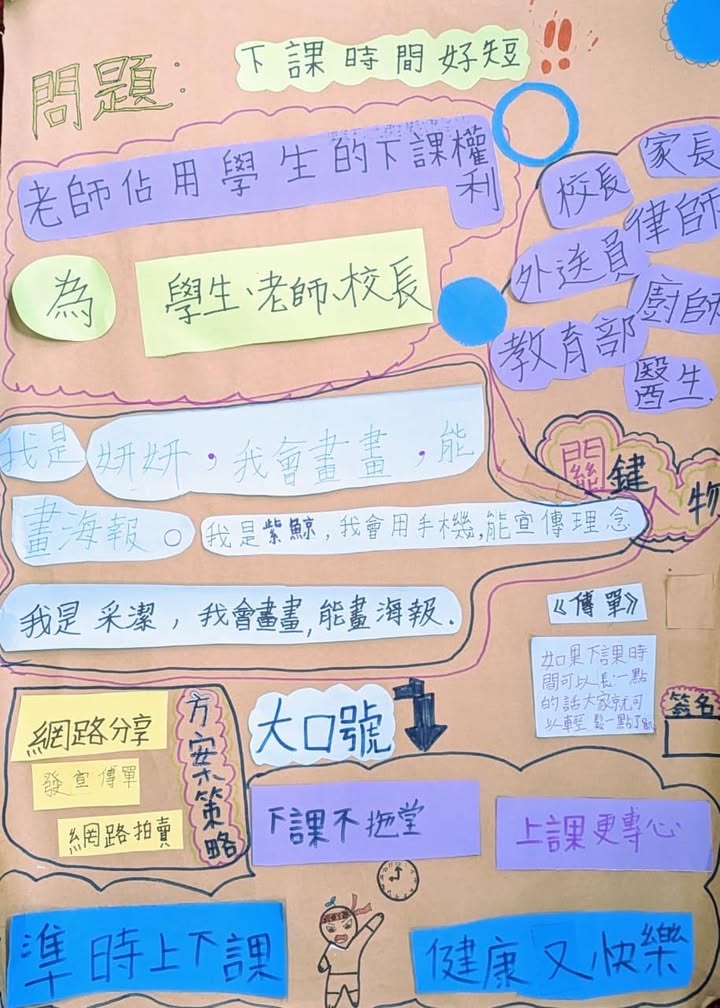 問題：
下課時間好短!!
老師佔用學生的下課權利
為
學生、老師、校長
校長
家長
外送員
律師
教育部
廚師
醫生
關鍵人物
我是妍妍，我會畫畫，能
畫海報。
我是紫鯨，我會用手機,能宣傳理念
我是采潔，我會畫畫,能畫海報.
《傳單》
如果下課時
間可以長一點
的話大家就可
以輕鬆一點了
簽名
方案策略
網路分享
發宣傳單
網路拍賣
大口號
下課不拖堂
上課更專心
準時上下課
健康又快樂